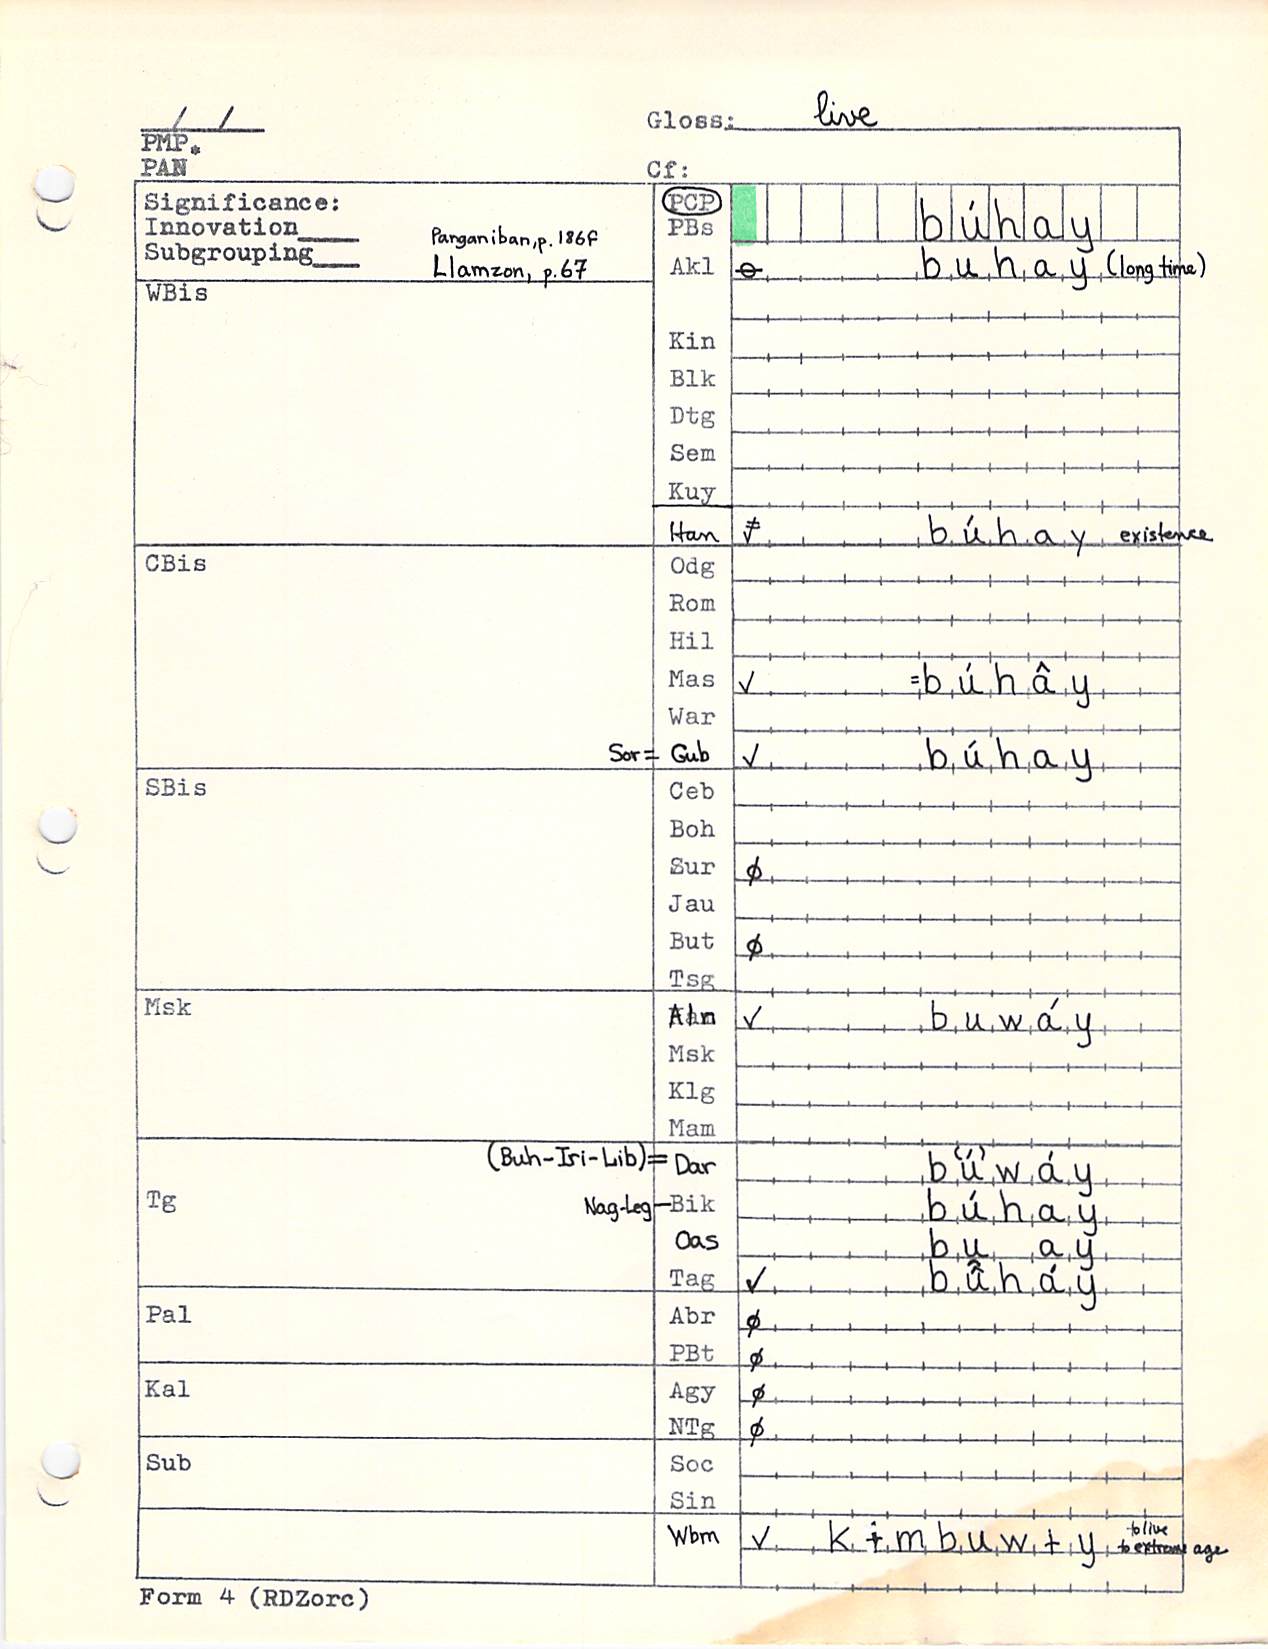 / /
Gloss: live
PMP.
PAN
Cf:
Significance:
Innovation____
Subgrouping____
Panganiban, p. 186f
Llamzon, p. 67
PCP
PBs búhay
Akl ⊖ buhay (long time)
WBis
Kin
Blk
Dtg
Sem
Kuy
Han búhay existence
CBis
Odg
Rom
Hil
Mas ✓ =búhây
War
Sor= Gub ✓ búhay
SBis
Ceb
Boh
Sur ∅
Jau
But ∅
Tsg
Msk
Aln ✓ buwáy
Msk
Klg
Mam
(Buh-Iri-Lib)= Dar b(ú)wáy
Tg
Nag-Leg—Bik búhay
Oas bu ay
Tag ✓ bûháy
Pal
Abr ∅
PBt ∅
Kal
Agy ∅
NTg ∅
Sub
Soc
Sin
Wbm ✓ kɨmbuwɨy to live
to extreme age
Form 4 (RDZorc)